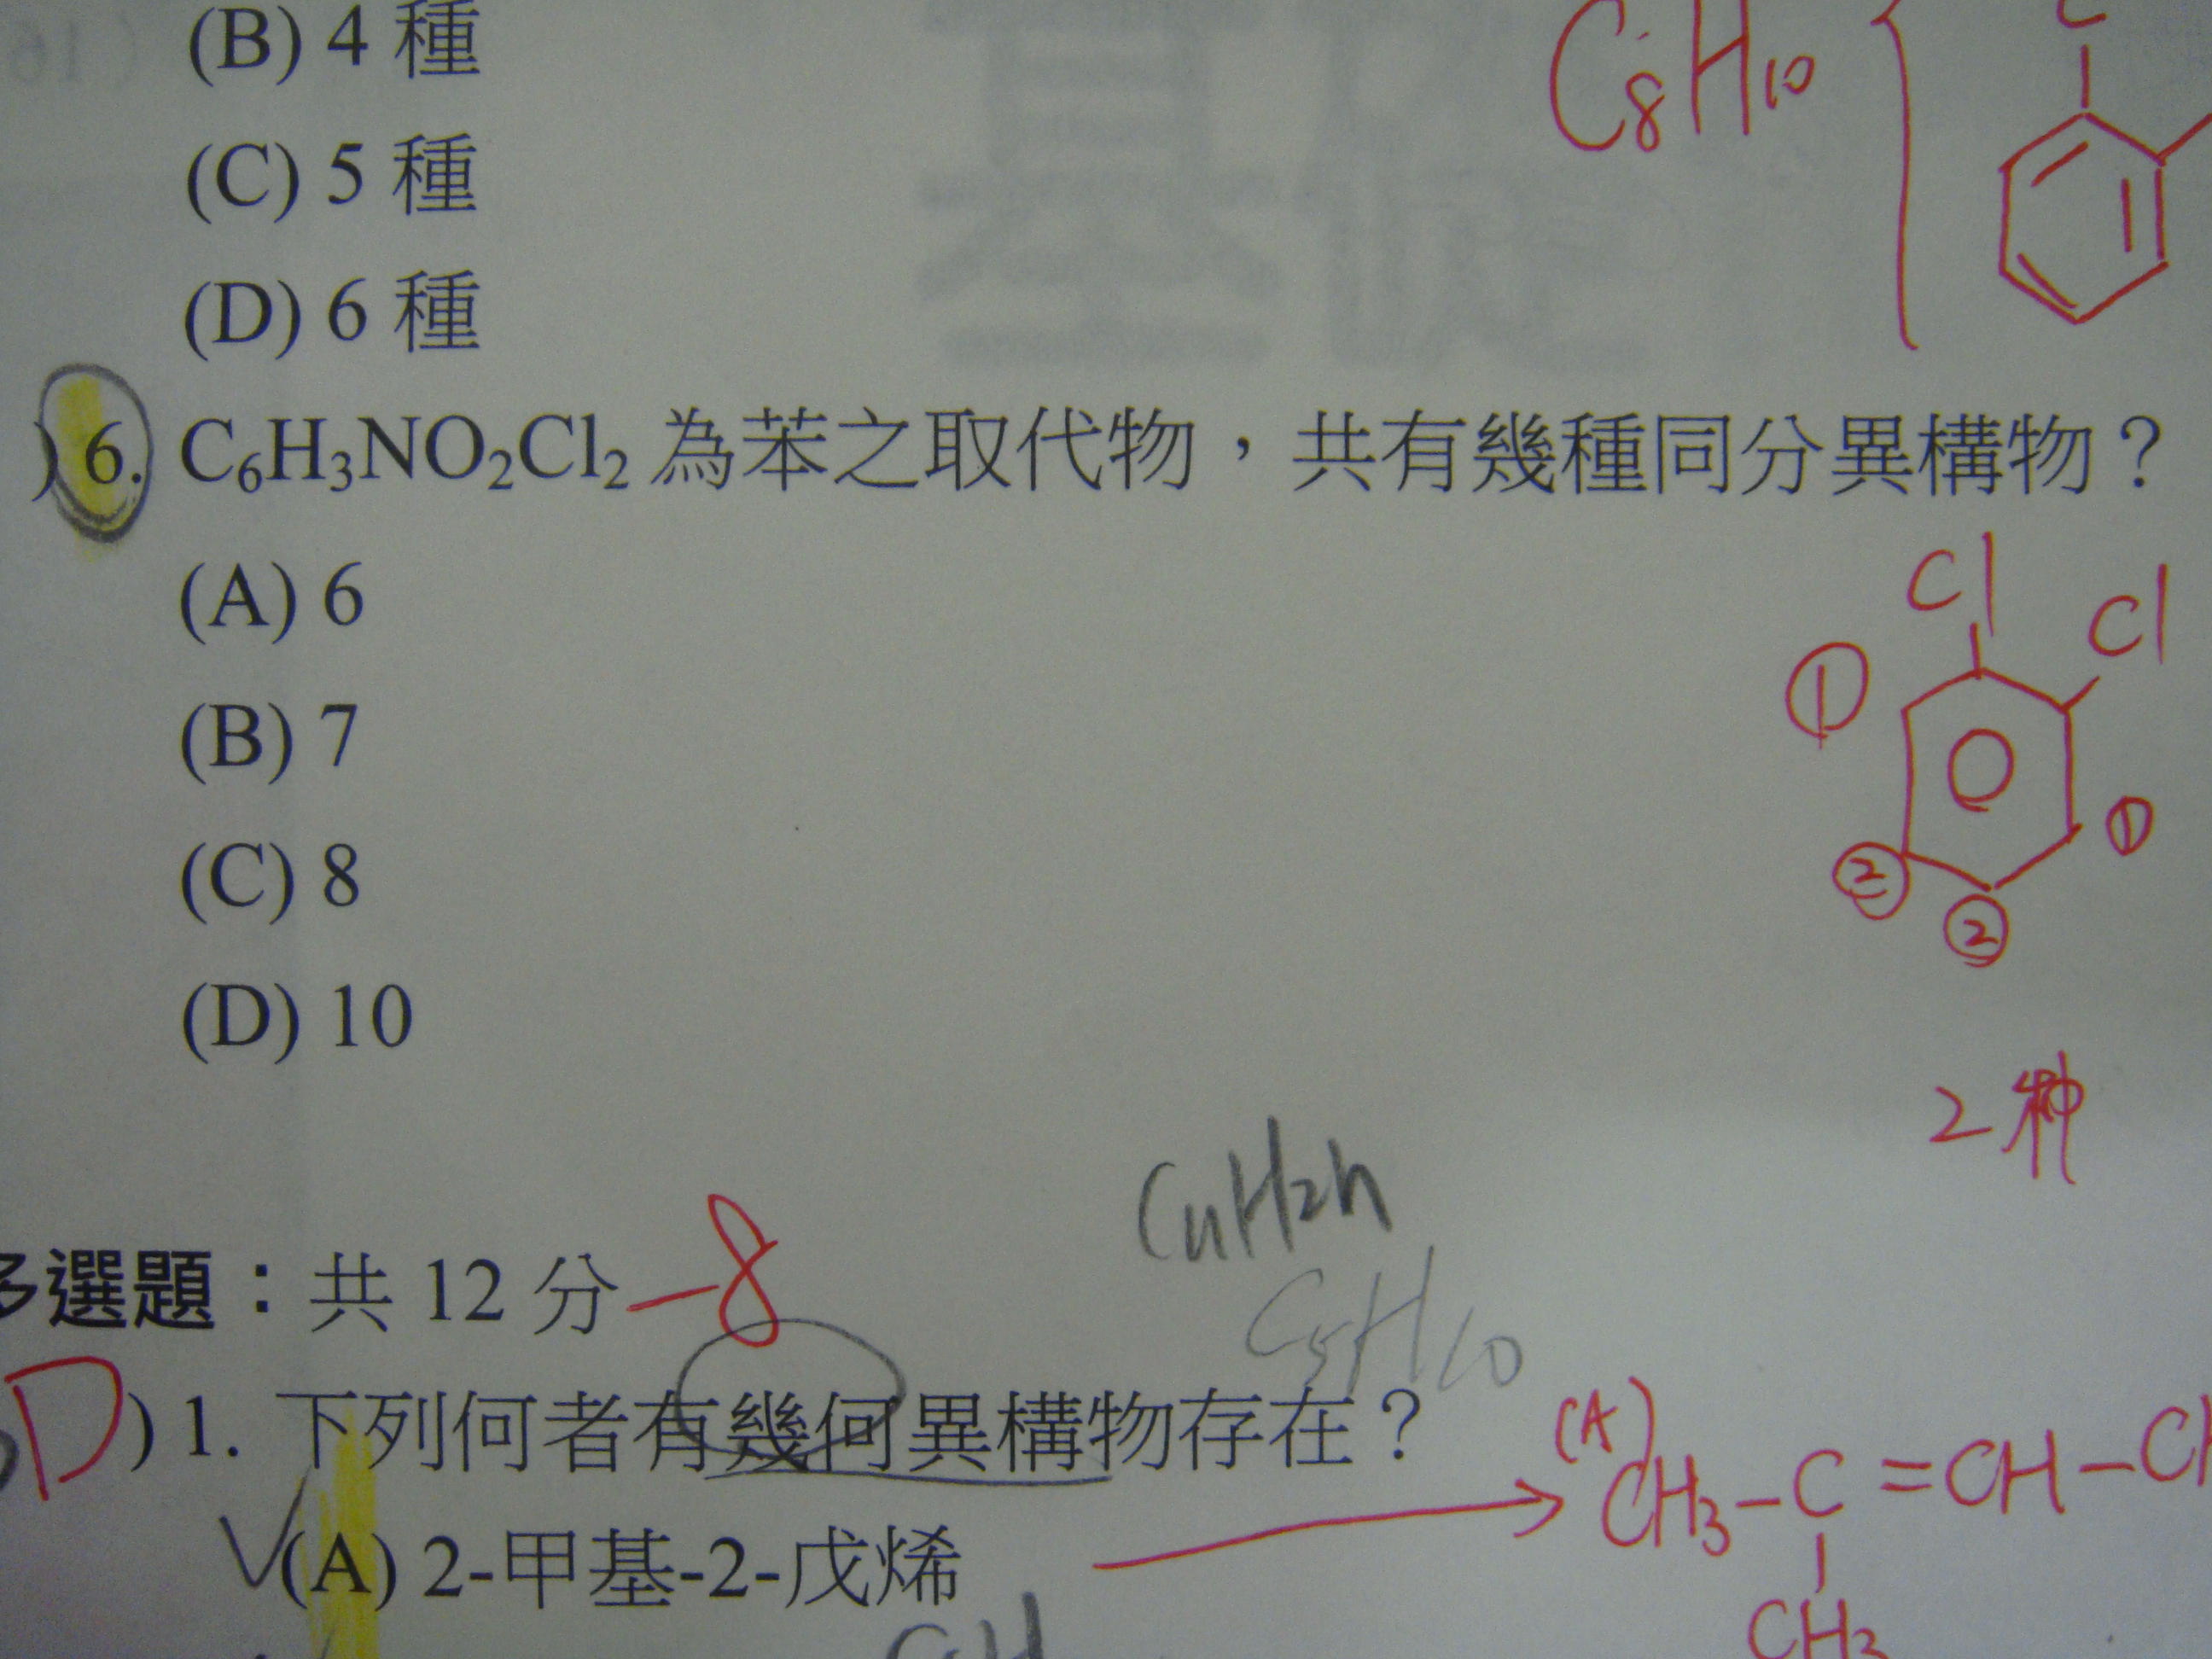 (B) 4 種
C₈H₁₀
C
(C) 5 種
(D) 6 種
)6. C₆H₃NO₂Cl₂ 為苯之取代物，共有幾種同分異構物？
(A) 6
Cl
Cl
①
(B) 7
①
(C) 8
②
②
(D) 10
2 种
CnH2n
多選題：共 12 分 -8
C5H10
D) 1. 下列何者有幾何異構物存在？
(A)
CH3-C=CH-CH
(A) 2-甲基-2-戊烯
CH3